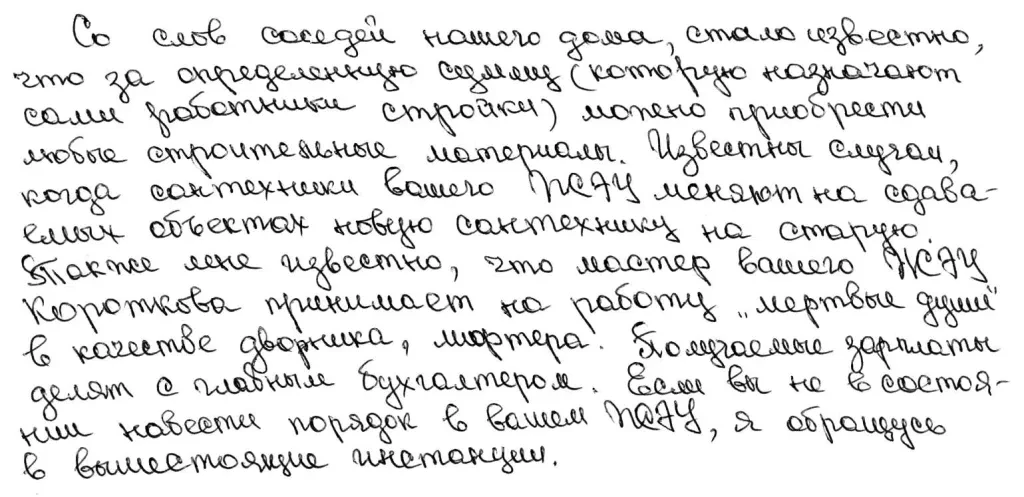 Со слов соседей нашего дома, стало известно,
что за определенную сумму (которую назначают
сами работники стройки) можно приобрести
любые строительные материалы. Известны случаи,
когда сантехники вашего ЖЭУ меняют на сдава-
емых объектах новую сантехнику на старую.
Также мне известно, что мастер вашего ЖЭУ
Короткова принимает на работу „мертвые души"
в качестве дворника, лифтера. Получаемые зарплаты
делят с главным бухгалтером. Если вы не в состоя-
нии навести порядок в вашем ЖЭУ, я обращусь
в вышестоящие инстанции.